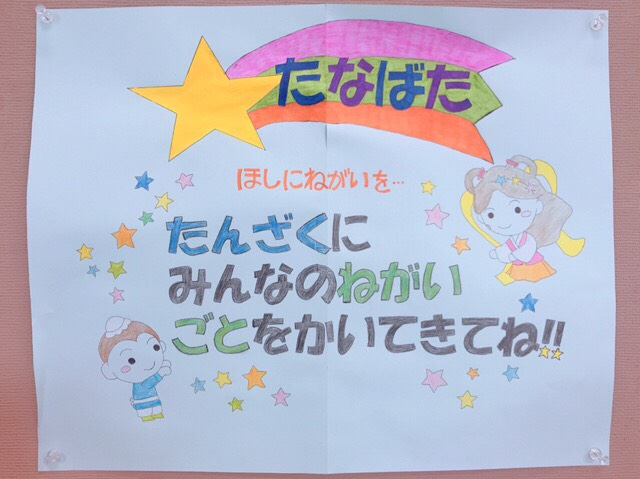 たなばた
ほしにねがいを…
たんざくに
みんなのねがい
ごとをかいてきてね!!